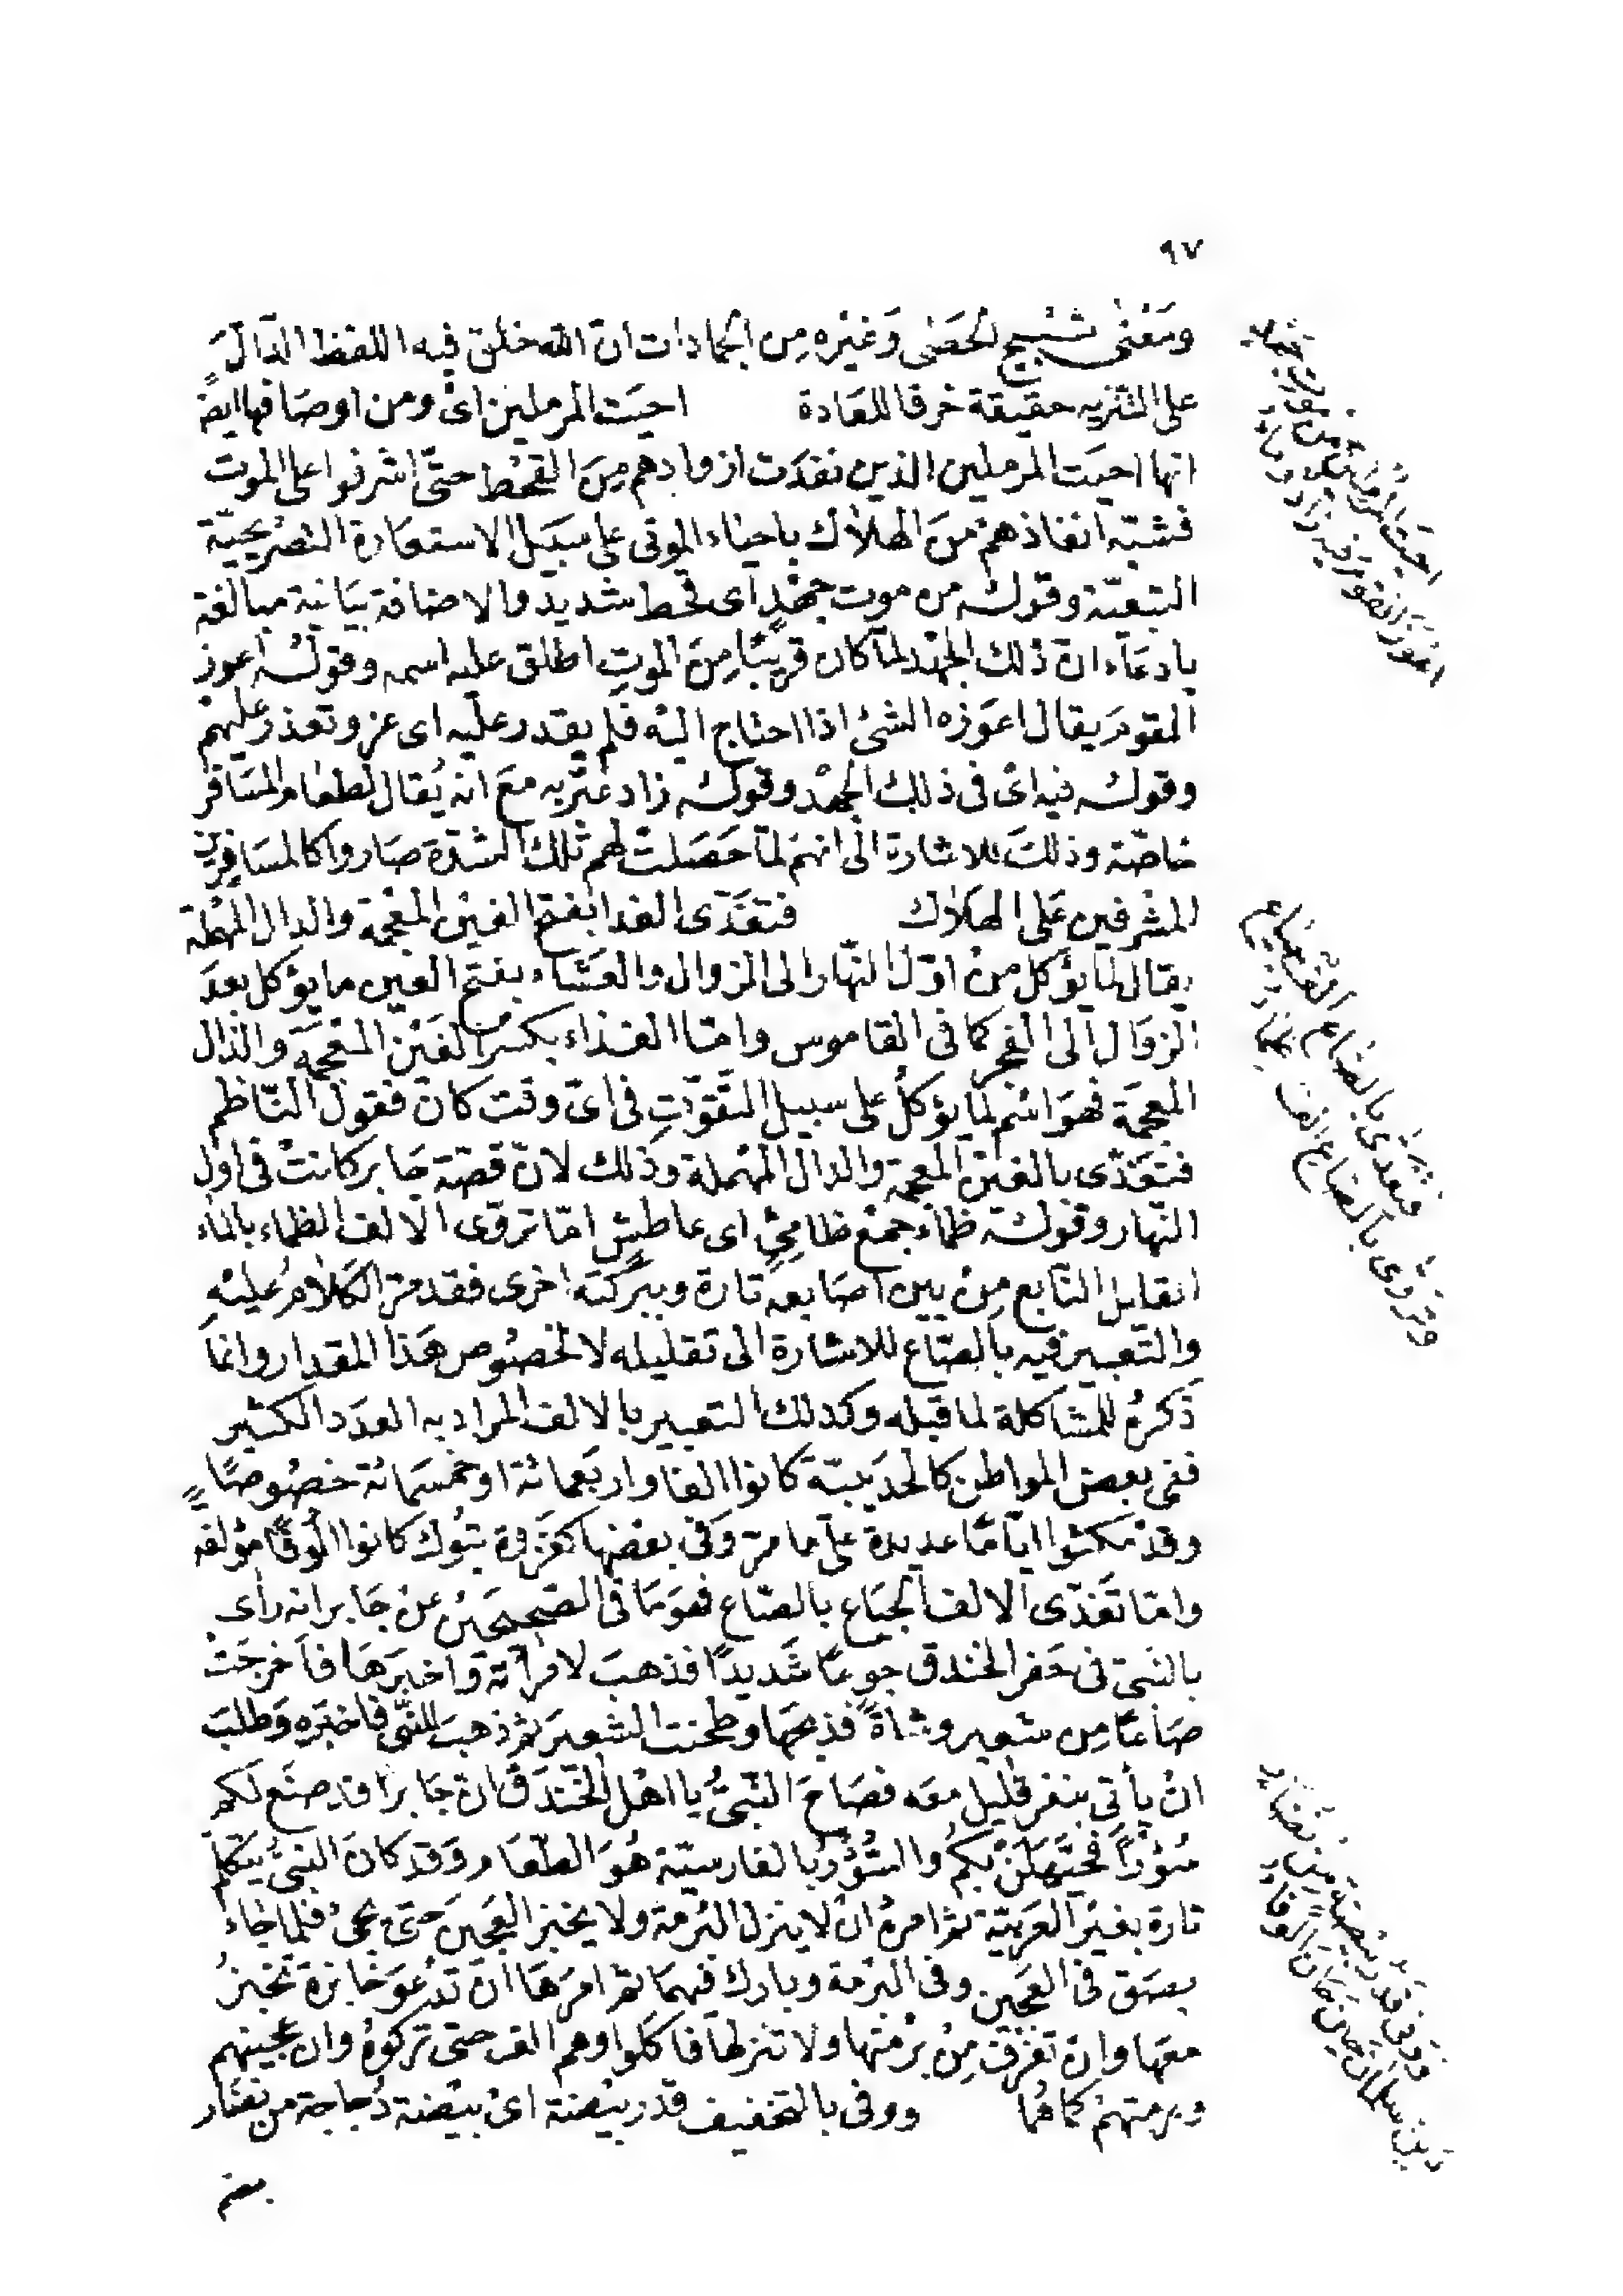 ٩٧
ومعنى تسبيح الحصى وغيره من الجمادات ان الله خلق فيه اللفظ الدال
على التنزيه حقيقة خرقا للعادة احيت المرملين اى ومن اوصافها ايضا
انها احيت المرملين الذين نفدت ازوادهم من القحط حتى اشرفوا على الموت
فشبه انقاذهم من الهلاك باحياء الموتى على سبيل الاستعارة التصريحية
التبعية وقوله من موت جهد اى قحط شديد والاضافة بيانية مبالغة
بادعاء ان ذلك الجهد لما كان قريبا من الموت اطلق عليه اسمه وقوله اعوز
القوم يقال اعوزه الشئ اذا احتاج اليه فلم يقدر عليه اى عز وتعذر عليهم
وقوله فيه اى فى ذلك الجهد وقوله زاد عبر به مع انه يقال لطعام المسافر
خاصة وذلك للاشارة الى انهم لما حصلت لهم تلك الشدة صاروا كالمسافرين
المشرفين على الهلاك فتغدى الغدا بفتح الغين المعجمة والدال المهملة
يقال لما يؤكل من اول النهار الى الزوال والعشاء بفتح العين ما يؤكل بعد
الزوال الى الفجر كما فى القاموس واما الغذاء بكسر الغين المعجمة والذال
المعجمة فهو اسم لما يؤكل على سبيل التقوت فى اى وقت كان فقول الناظم
فتغدى بالغين المعجمة والدال المهملة وذلك لان قصة جابر كانت فى اول
النهار وقوله ظماء جمع ظامئ اى عاطش اما تروى الالف الظماء بالماء
القليل النابع من بين اصابعه تارة وببركته اخرى فقد مر الكلام عليه
والتعبير فيه بالصاع للاشارة الى تقليله لا لخصوص هذا المقدار وانما
ذكره للمشاكلة لما قبله وكذلك التعبير بالالف المراد به العدد الكثير
ففى بعض المواطن كالحديبية كانوا الفا واربعمائة او خمسمائة خصوصا
وقد مكثوا اياما عديدة على ما مر وفى بعضها كغزوة تبوك كانوا الوفا مؤلفة
واما تغدى الالف الجياع بالصاع فهو ما فى الصحيحين عن جابر انه راى
بالنبى فى حفر الخندق جوعا شديدا فذهب لامرأته واخبرها فاخرجت
صاعا من شعير وشاة فذبحها وطحنت الشعير ثم ذهب للنبى فاخبره وطلب
ان يأتى بنفر قليل معه فصاح النبى يا اهل الخندق ان جابرا قد صنع لكم
سؤرا فحيهلن بكم والسؤر بالفارسية هو الطعام وقد كان النبى يتكلم
تارة بغير العربية ثم امره ان لا ينزل البرمة ولا يخبز العجين حتى يجئ فلما جاء
بصق فى العجين وفى البرمة وبارك فيهما ثم امرها ان تدعو خابزة تخبز
معها وان تغرف من برمتها ولا تنزلها فاكلوا وهم الف حتى تركوه وان عجينهم
وبرمتهم كما هما ووفى بالتخفيف قدر بيضة اى بيضة دجاجة من نضار
احيت المرملين من موت جهد
اعوز القوم فيه زاد وماء
فتغدى بالصاع الف جياع
وتروى بالصاع الف ظماء
ووفى قدر بيضة من نضار
دين سلمان حين حان الوفاء